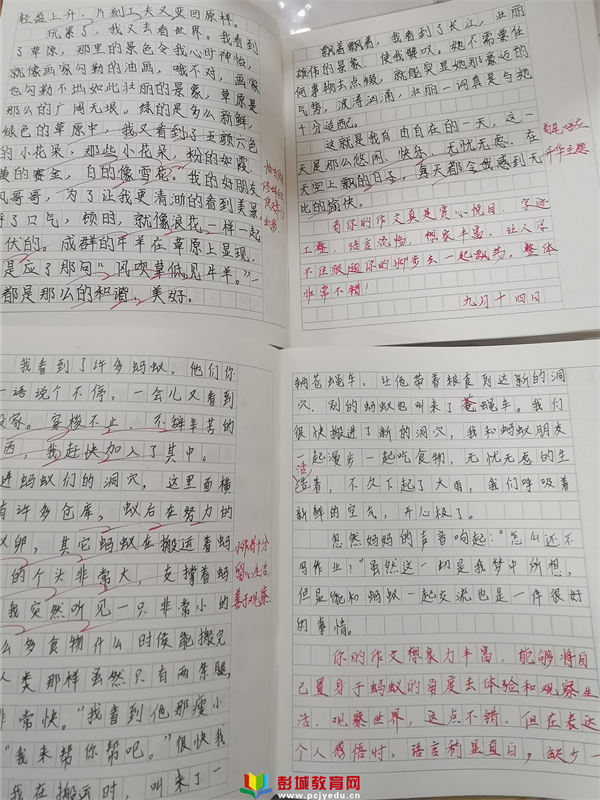 轻盈上升，片刻工夫又变回原样。
玩累了，我又去看世界。我看到
了草原，那里的景色令我心旷神怡，
就像画家勾勒的油画，哦不对，画家
也勾勒不出如此壮丽的景象，草原是
那么的广阔无垠。绿的是多么新鲜，
绿色的草原中，我又看到了五颜六色
的小花朵，那些小花朵，粉的如霞，
黄的赛金，白的像雪花。我的好朋友
风哥哥，为了让我更清晰的看到美景，
了口气，顿时，就像浪花一样一起
伏的。成群的牛羊在草原上显现，
是应了那句"风吹草低见牛羊。"一
都是那么的和谐、美好。
飘着飘着，我看到了长江，壮丽
雄伟的景象，使我赞叹。她不需要任
何事物去点缀，就能突显她那豪迈的
气势，波涛汹涌，壮丽一词真是与她
十分适配。
这就是我自由自在的一天，这一
天是那么悠闲、快乐、无忧无虑。在
天空上飘的日子，真天都令我感到无
比的愉快。
首尾呼应
升华主题
看你的作文真是赏心悦目，字迹
工整，语言流畅，想象丰富，让人忍
不住跟随你的脚步去一起飘荡。整体
非常不错！
九月十四日
我看到了许多蚂蚁，他们你
一语说个不停，一会儿又看到
搬家。穿梭不止、不辞辛苦的
西，我赶快加入了其中。
进蚂蚁们的洞穴，这里面横
有许多仓库，蚁后在努力的
卵，其它蚂蚁在搬运着蚂
的个头非常大，支撑着蚂
我突然听见一只非常小的
么多食物什么时候能搬完
人类那样虽然只有两条腿，
非常快。"我看到他那瘦小
"我来帮你帮吧。"很快我
我在搬运时，叫来了一
小作者十分
留心生活，
善于观察。
辆苍蝇车，让他带着粮食到达新的洞
穴，别的蚂蚁也叫来了苍蝇车。我们
很快搬进了新的洞穴，我和蚂蚁朋友
一起漫步一起吃食物，无忧无虑的生
活着，不久下起了大雨，我们呼吸着
新鲜的空气，开心极了。
忽然妈妈的声音响起："怎么还不
写作业？"虽然这一切是我梦中所想，
但是能和蚂蚁一起交流也是一件很好
的事情。
你的作文想象力丰富，能够将自
己置身于蚂蚁的角度去体验和观察生
活、观察世界，这点不错。但在表达
个人感悟时，语言稍显直白，缺少一
彭城教育网
www.pcjyedu.cn